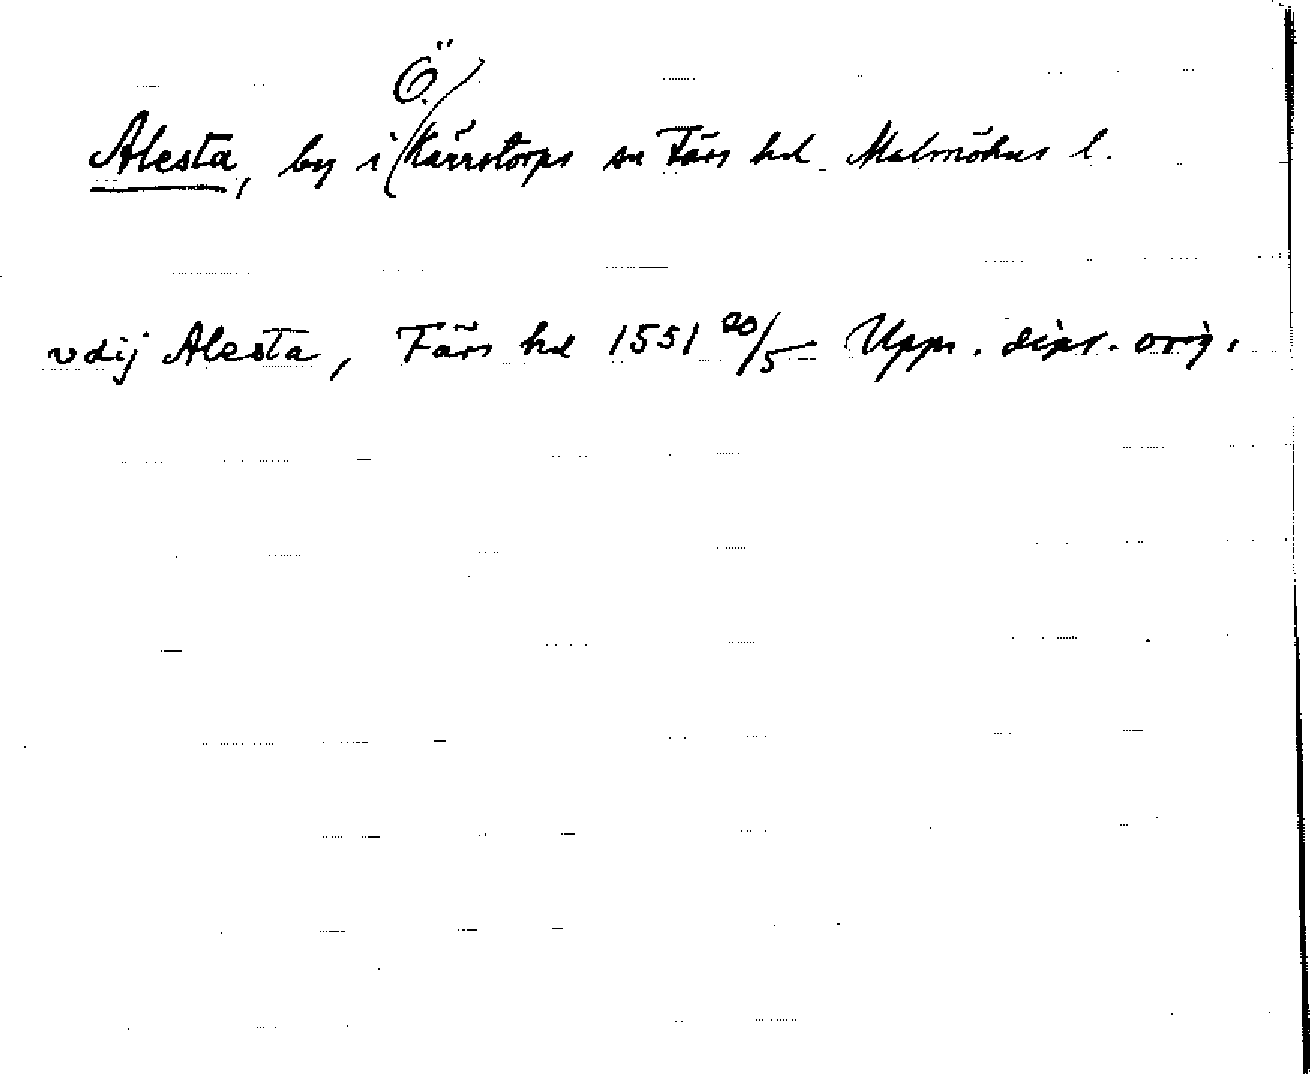 Alesta, by i Ö. Kärrstorps sn Färs hd Malmöhus l.
vdij Alesta, Färs hd 1551 20/5 Upps. dipl. orig.